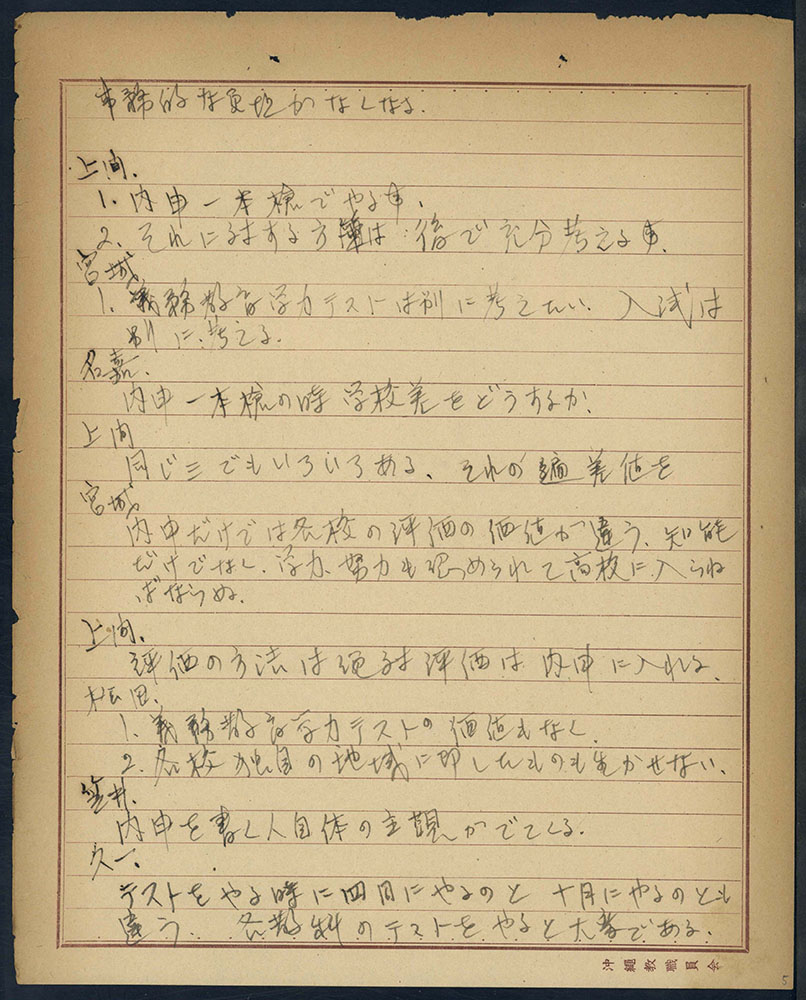 事務的な負担がなくなる.
上間.
1. 内申一本槍でやる事.
2. それに対する方法は後で充分考える事.
宮城
1. 義務教育学力テストは別に考えたい. 入試は
別に考える.
名嘉.
内申一本槍の時学校差をどうするか.
上間
同じ三でもいろいろある. それの偏差値を
宮城
内申だけでは各校の評価の価値が違う. 知能
だけでなく. 学力. 努力も認められて高校に入らね
ばならぬ.
上間.
評価の方法は絶対評価は内申に入れる.
松田.
1. 義務教育学力テストの価値もなく.
2. 各校独自の地域に即したものも生かせない.
笠井.
内申を書く人自体の主観がでてくる.
久一.
テストをやる時に四月にやるのと十月にやるのとも
違う. 各教科のテストをやると大変である.
沖縄教職員会
5